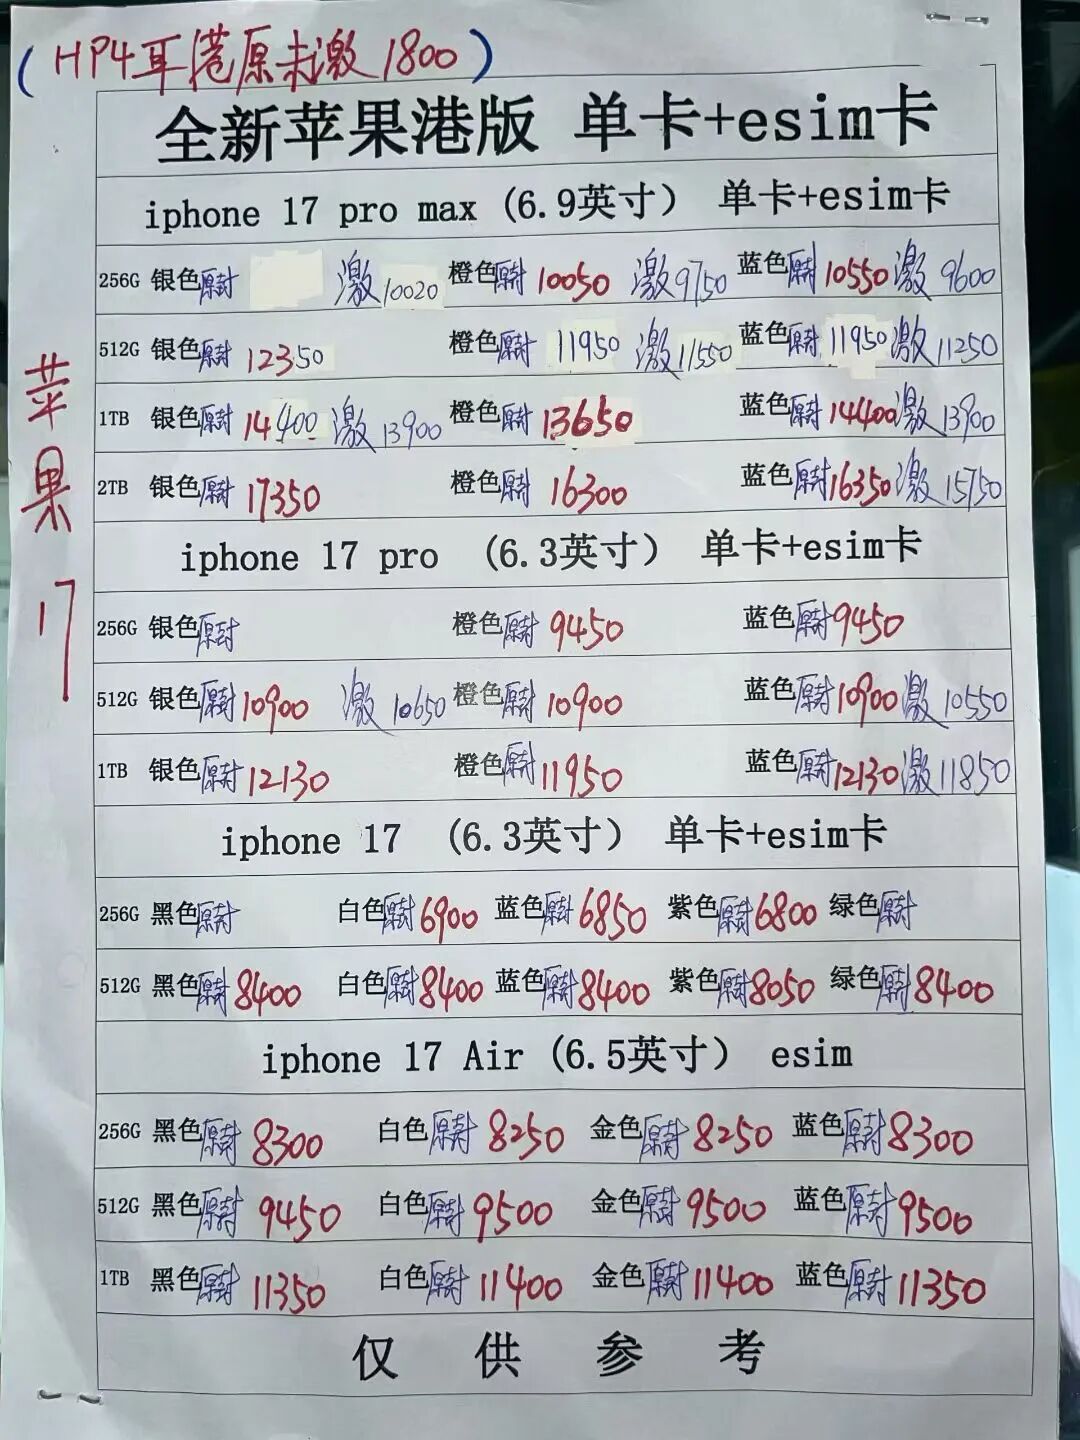 (HP4耳港原未激1800)
全新苹果港版 单卡+esim卡
iphone 17 pro max (6.9英寸) 单卡+esim卡
256G 银色原封 激10020 橙色原封 10050 激9750 蓝色原封 10550 激 9600
512G 银色原封 12350 橙色原封 11950 激11550 蓝色原封 11950 激11250
1TB 银色原封 14400 激 13900 橙色原封 13650 蓝色原封 14400 激13900
2TB 银色原封 17350 橙色原封 16300 蓝色原封 16350 激15750
苹果17
iphone 17 pro (6.3英寸) 单卡+esim卡
256G 银色原封 橙色原封 9450 蓝色原封 9450
512G 银色原封 10900 激 10650 橙色原封 10900 蓝色原封 10900 激 10550
1TB 银色原封 12130 橙色原封 11950 蓝色原封 12130 激 11850
iphone 17 (6.3英寸) 单卡+esim卡
256G 黑色原封 白色原封 6900 蓝色原封 6850 紫色原封 6800 绿色原封
512G 黑色原封 8400 白色原封 8400 蓝色原封 8400 紫色原封 8050 绿色原封 8400
iphone 17 Air (6.5英寸) esim
256G 黑色原封 8300 白色原封 8250 金色原封 8250 蓝色原封 8300
512G 黑色原封 9450 白色原封 9500 金色原封 9500 蓝色原封 9500
1TB 黑色原封 11350 白色原封 11400 金色原封 11400 蓝色原封 11350
仅供参考